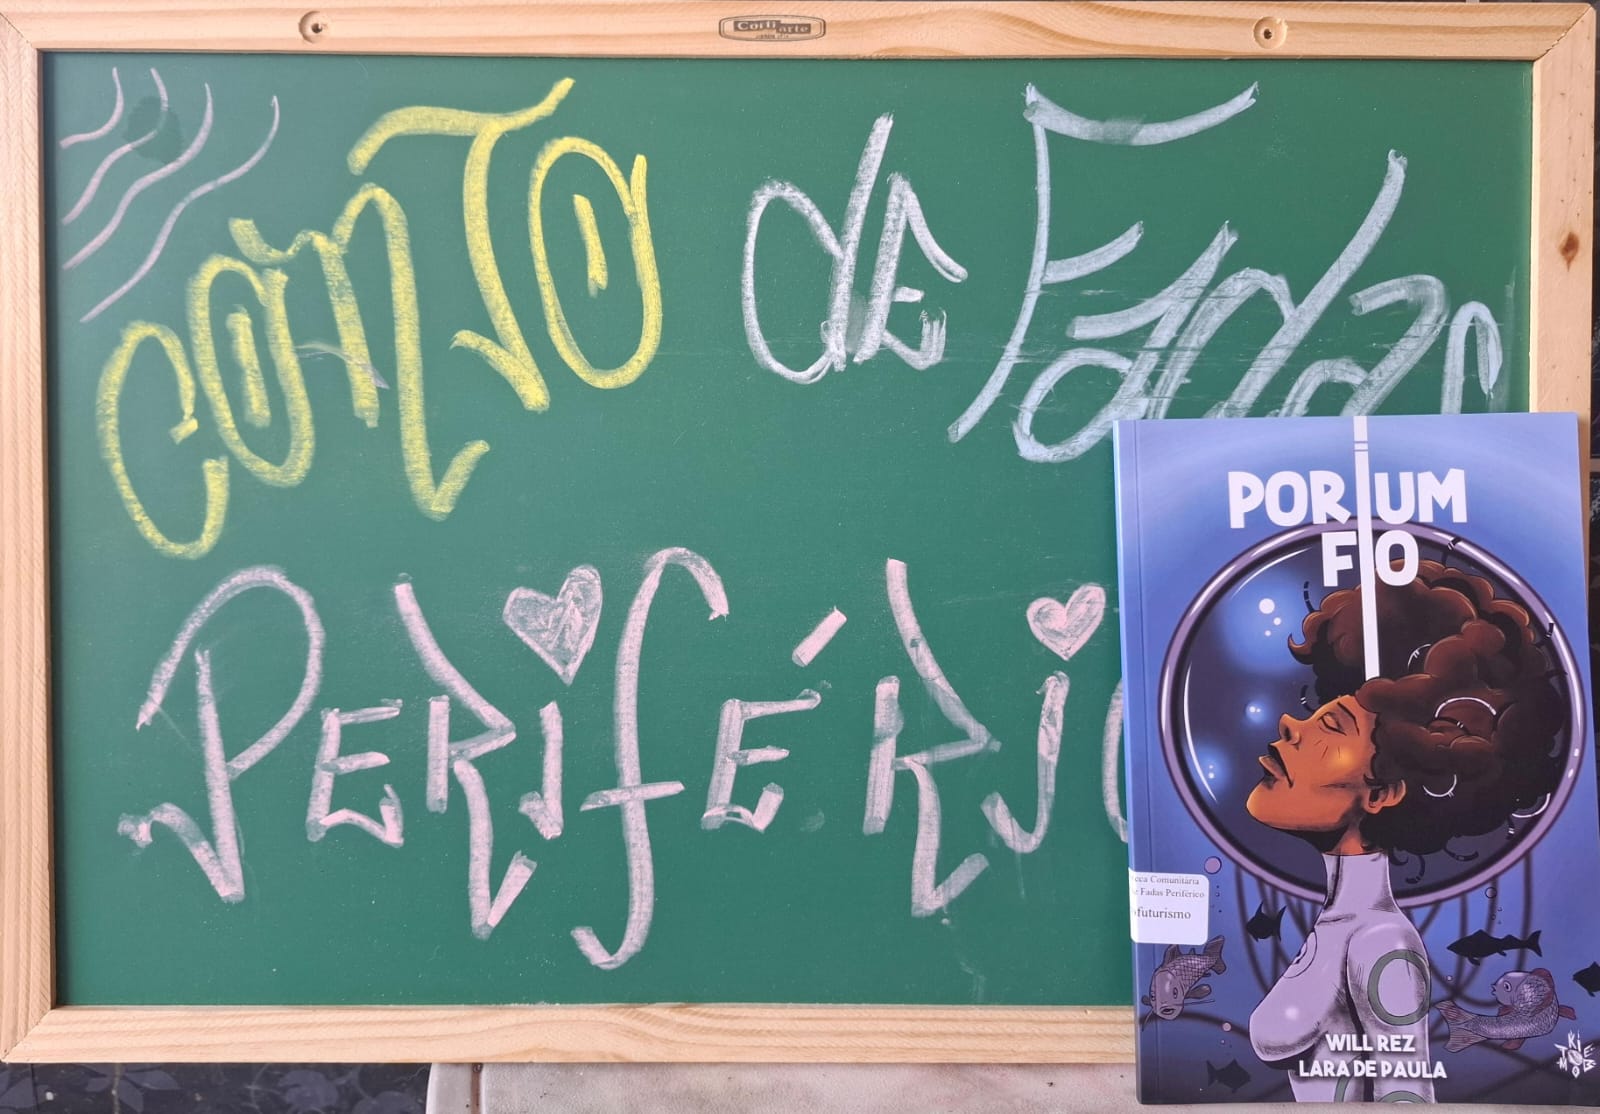 Corti arte
CONTO de Fadas
PERIFÉRIC
POR UM
FIO
eca Comunitária
e Fadas Periférico
ofuturismo
WILL REZ
LARA DE PAULA